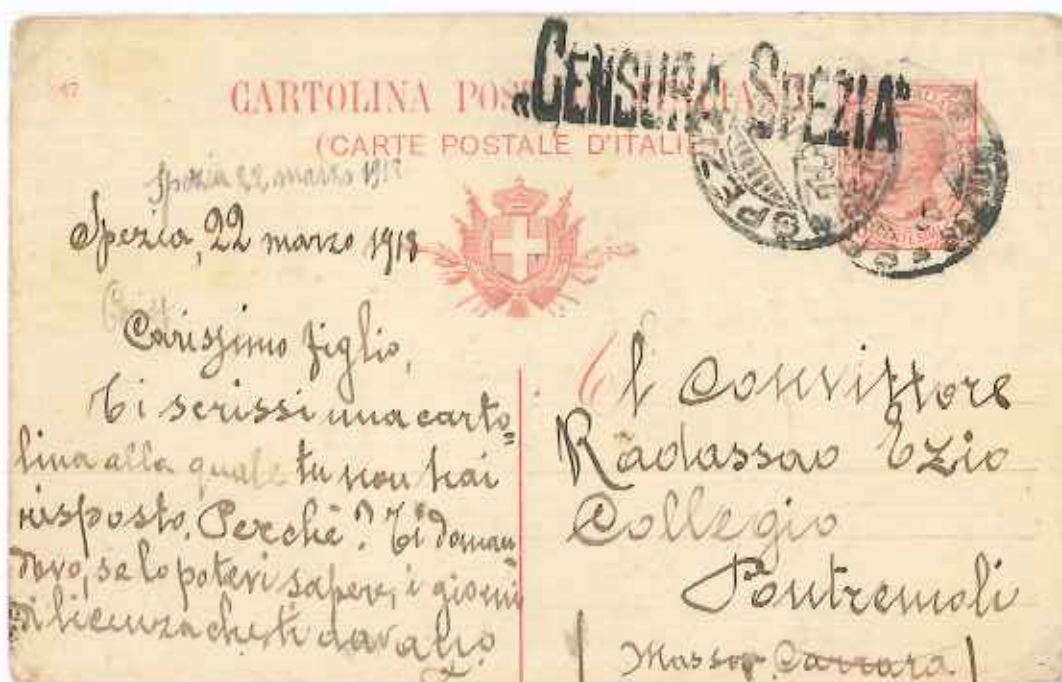 47
CARTOLINA POS
(CARTE POSTALE D'ITALIE
„CENSURA SPEZIA"
SPEZIA
Spezia 22 marzo 1918
Spezia, 22 marzo 1918
Carissimo figlio,
Ti scrissi una carto=
lina alla quale tu non hai
risposto. Perchè? Ti doman
davo, se lo potevi sapere, i giorni
di licenza che ti davano
Al Convittore
Radassao Ezio
Collegio
Pontremoli
(Massa Carrara)